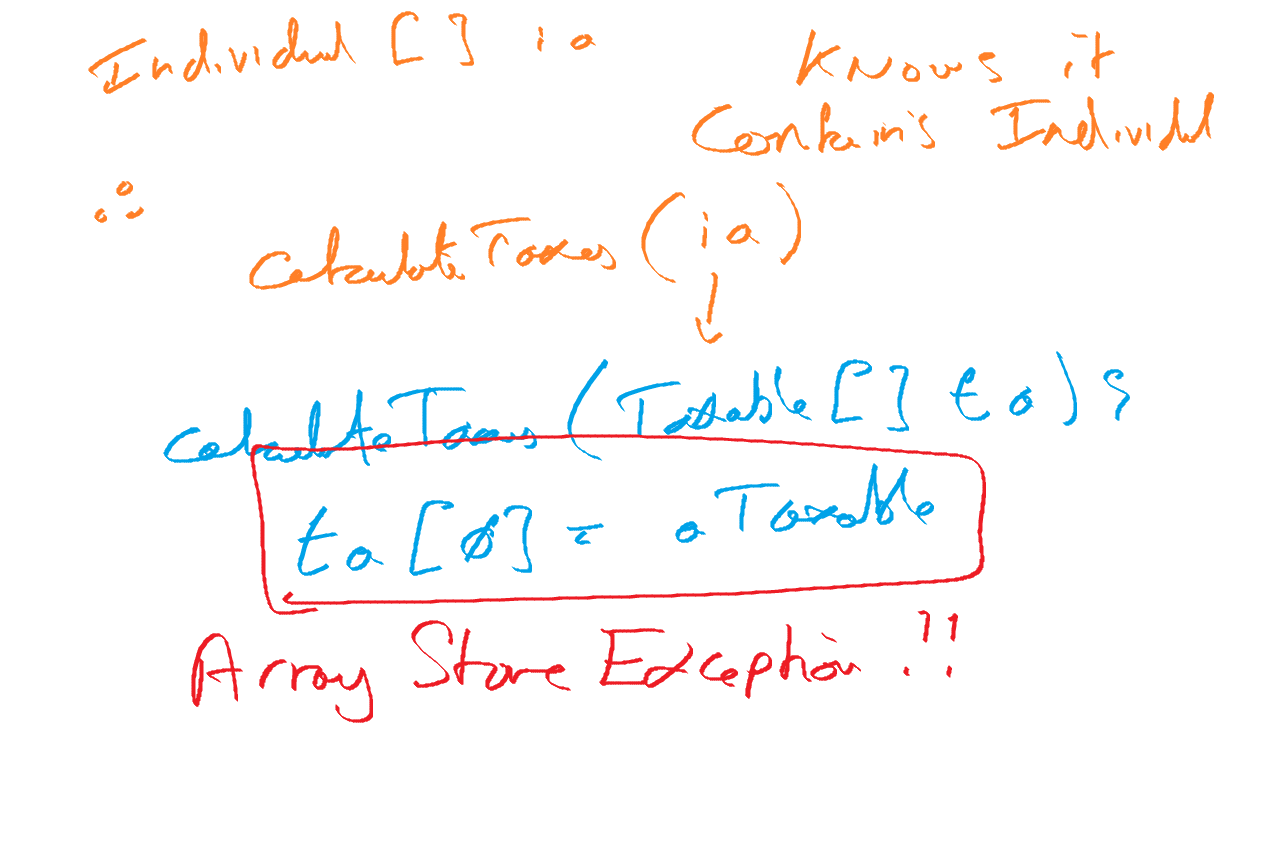 Individual [ ] ia
Knows it
Contains Individul
∴
calculateTaxes (ia)
↓
calculateTaxes (Taxable [ ] ta) {
ta [0] = aTaxable
Array Store Exception !!